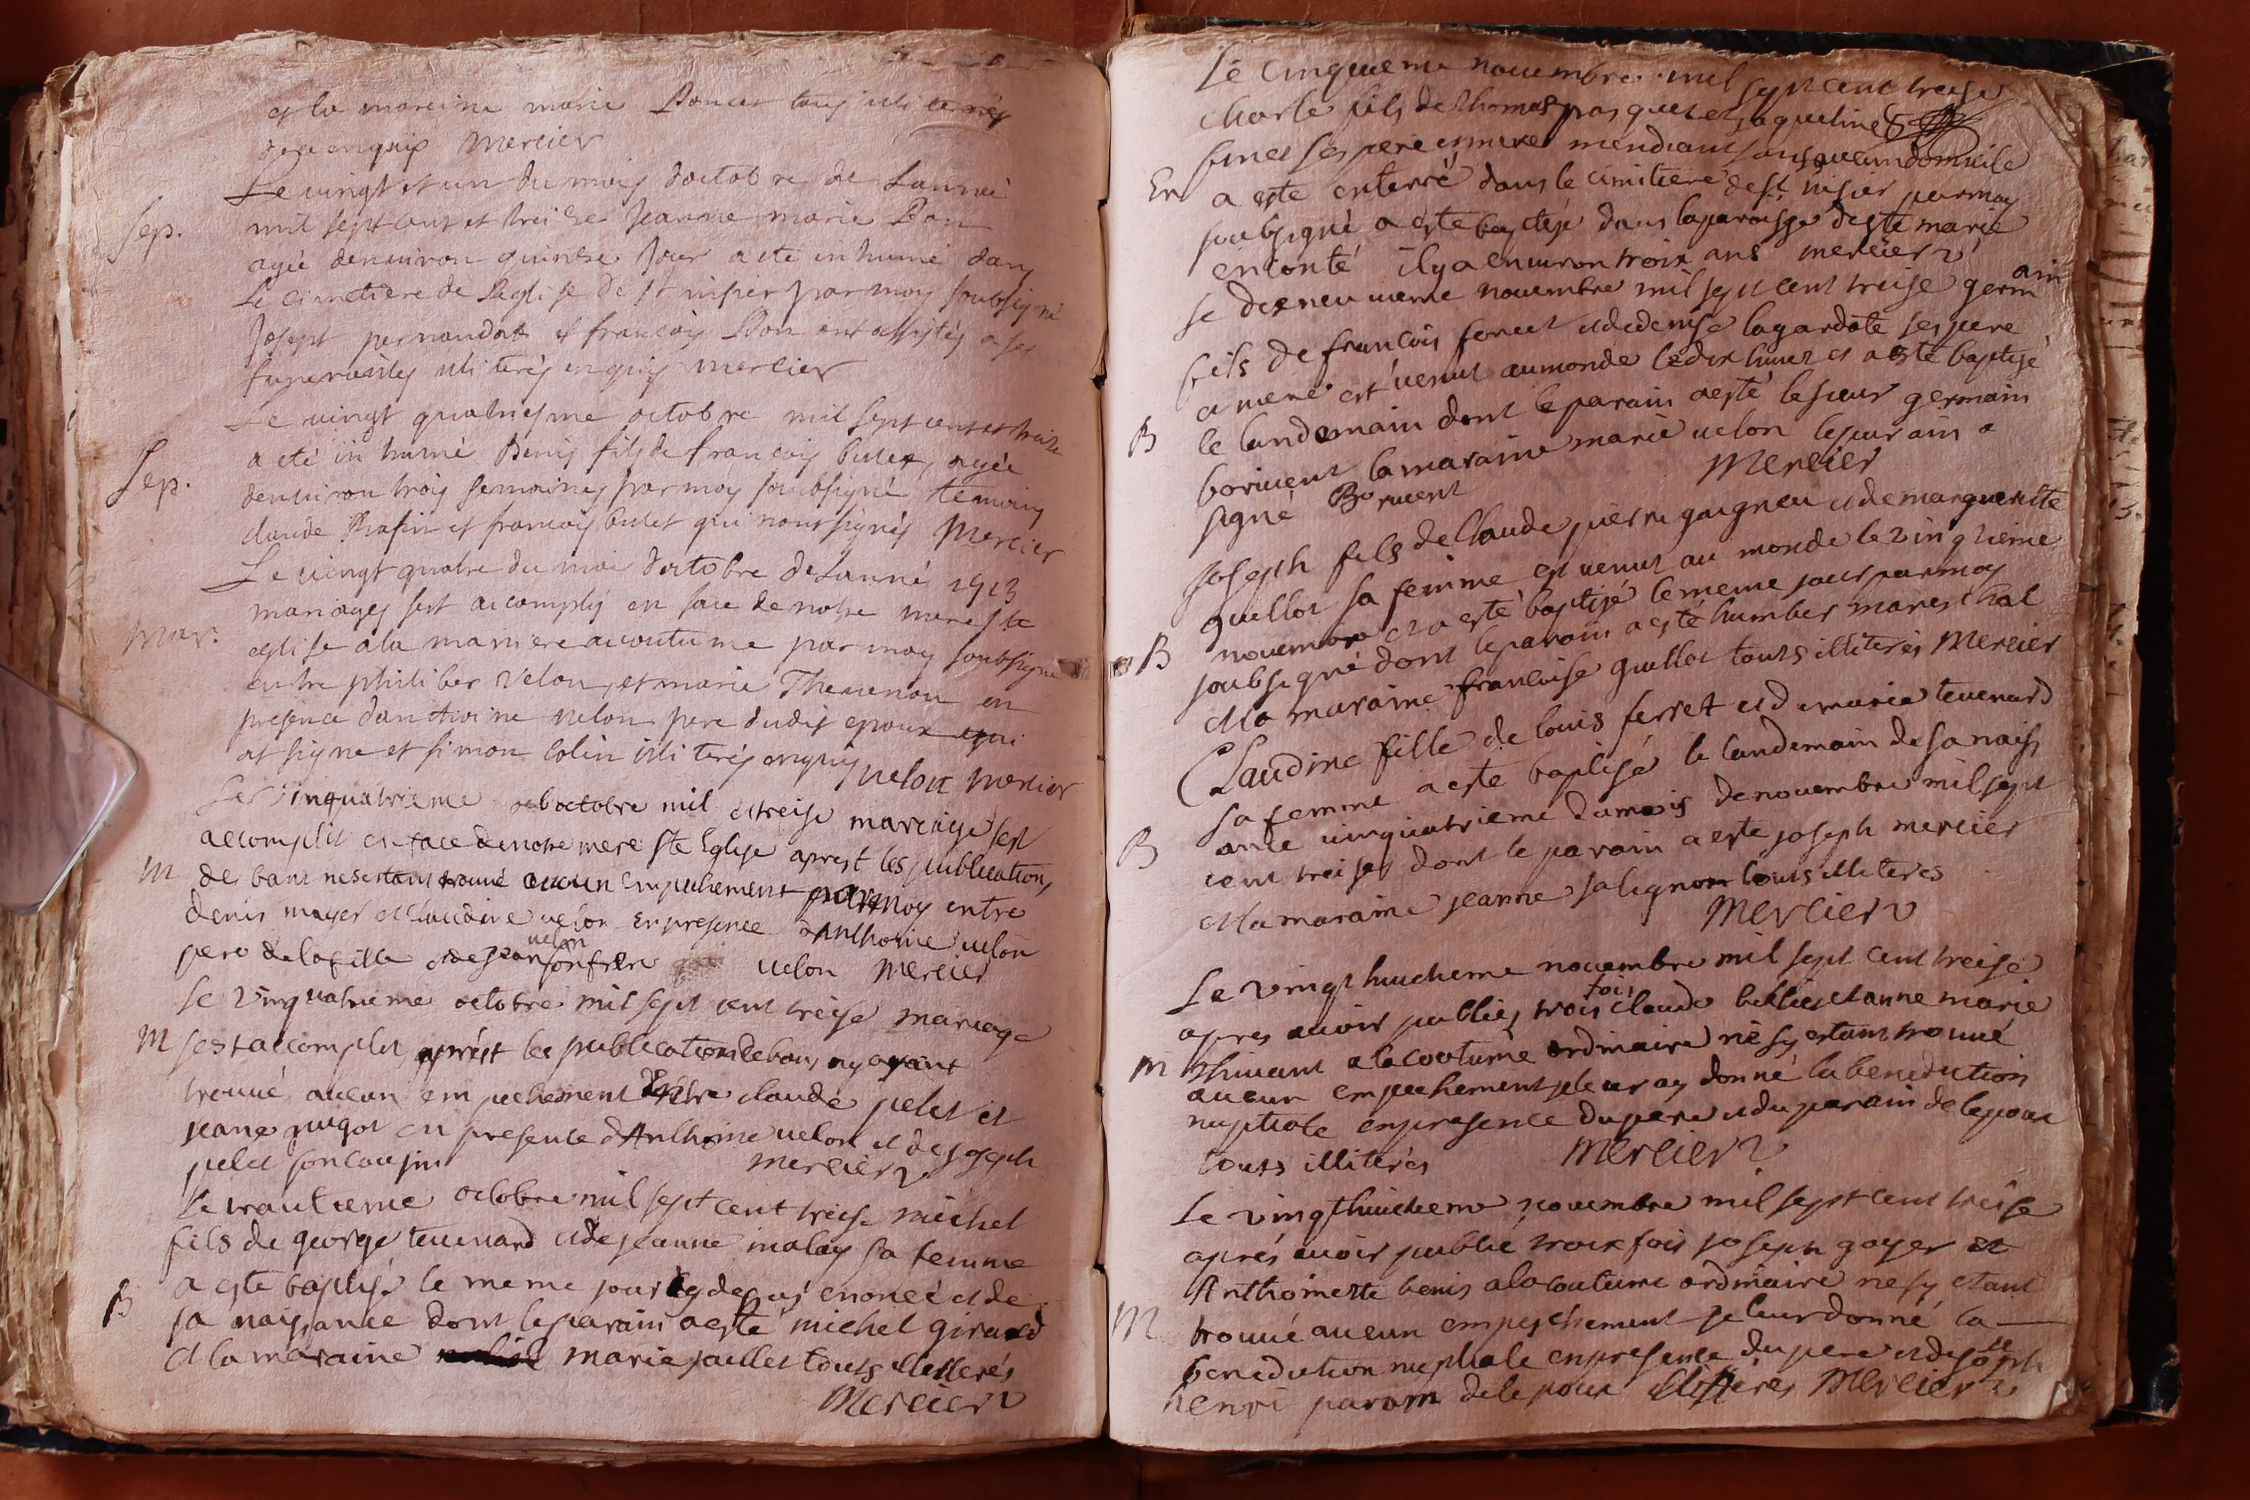 et la mareine marie Poncet tous illiterés
de ce enquis Mercier
Le vingt et un du mois doctobre de Lannée
Sep. mil sept cent et treise Jeanne marie Bon
agée denuiron quinse Jour a eté inhumé dans
Le cimetiere de Leglise de st nisier par moy soubsigné
Josept pernaudat et francois Bon ont assistés a ses
funerailles illiterés enquis mercier
Le vingt quatriesme octobre mil sept cent et treize
a eté inhumé Denis fils de francois bulet, agée
Sep. denuiron trois semaines par moy soubsigné, temoins
claude et francois bulet qui nont signés Mercier
Le vingt quatre du moi doctobre de Lanné 1713
mariages sest acomplis en face de notre mere ste
mar. eglise a la maniere acoutume par moy soubsigné
entre philiber Velon, et marie Theuenon en
presence danthoine velon pere dudit epoux qui
at signe et simon Colin illiterés enquis velon mercier
Le vinquatrieme octobre mil et treise mariage sest
acomplit en face de notre mere ste Eglise aprest les publication,
M de bans ne sertant trouué aucun empechement par moy entre
denis mayer et Claudine velon En presence dAnthoine velon
pere de la fille et de Jean velon son frere velon Mercier
Le vinquatrieme octobre mil sept cent treise mariage
M sest accomplit aprést les publication de bans ny ayant
trouué aucun empechement Entre claude pelet et
jeane nugot en presence dAnthoine velon et de joseph
pelet son cousin mercier
Le trantieme octobre mil sept cent treise michel
fils de george teuenard et de jeanne malay sa femme
a este baptisé le meme jour cy desus enoncé et de
B sa naissance dont le parain a esté michel girard
et la maraine marie paillet touts illiterés
Mercier
Le cinquieme nouembre mil sept cent treise
charle fils de thomas pasquet et jaqueline
finet ses pere et mere mendiant sans aucun domicile
En a este enterré dans le cimitiere de st nisier par moy
soubsigné a este baptisé dans la paroisse de ste marie
en conté il y a enuiron trois ans mercier
Le dixneuuieme nouembre mil sept cent treise germain
fils de francois ferret et de denise lagardete ses pere
et mere est venut au monde le dix huict et a esté baptisé
B le landemain dont le parain a esté le sieur germain
boriuent la maraine marie velon le parain a
signé Boriuent Mercier
Joseph fils de Claude pierre gaigneu et de marguerite
guillot sa femme est venut au monde le vingtieme
B nouembre et a esté baptisé le meme jour par moy
soubsigné dont le parain a esté humber mareschal
et la maraine francoise guillot touts illiterés Mercier
Claudine fille de louis ferret et de marie teuenard
sa femme a este baptisé le landemain de sa naiss
B ance vinquatrieme du mois de nouembre mil sept
cent treise dont le parain a este joseph mercier
et la maraine jeanne salignon touts illiteres
Mercier
Le vingt huictieme nouembre mil sept cent treise
apres auoir publiés trois fois claude et anne marie
M thiuant a la coutume ordinaire ne sy estant trouué
aucun empechement je leur ay donné la benediction
nuptiale en presence du pere et du parain de lepoux
touts illiterés Mercier
Le vingthuictieme nouembre mil sept cent treise
aprés auoir publié troix fois joseph goyer et
Anthoinette benis a la coutume ordinaire ne sy etant
M trouué aucun empeschement je leur donné la
benediction nuptiale en presence du pere et de joseph
henri parain de lepoux illiterés Mercier